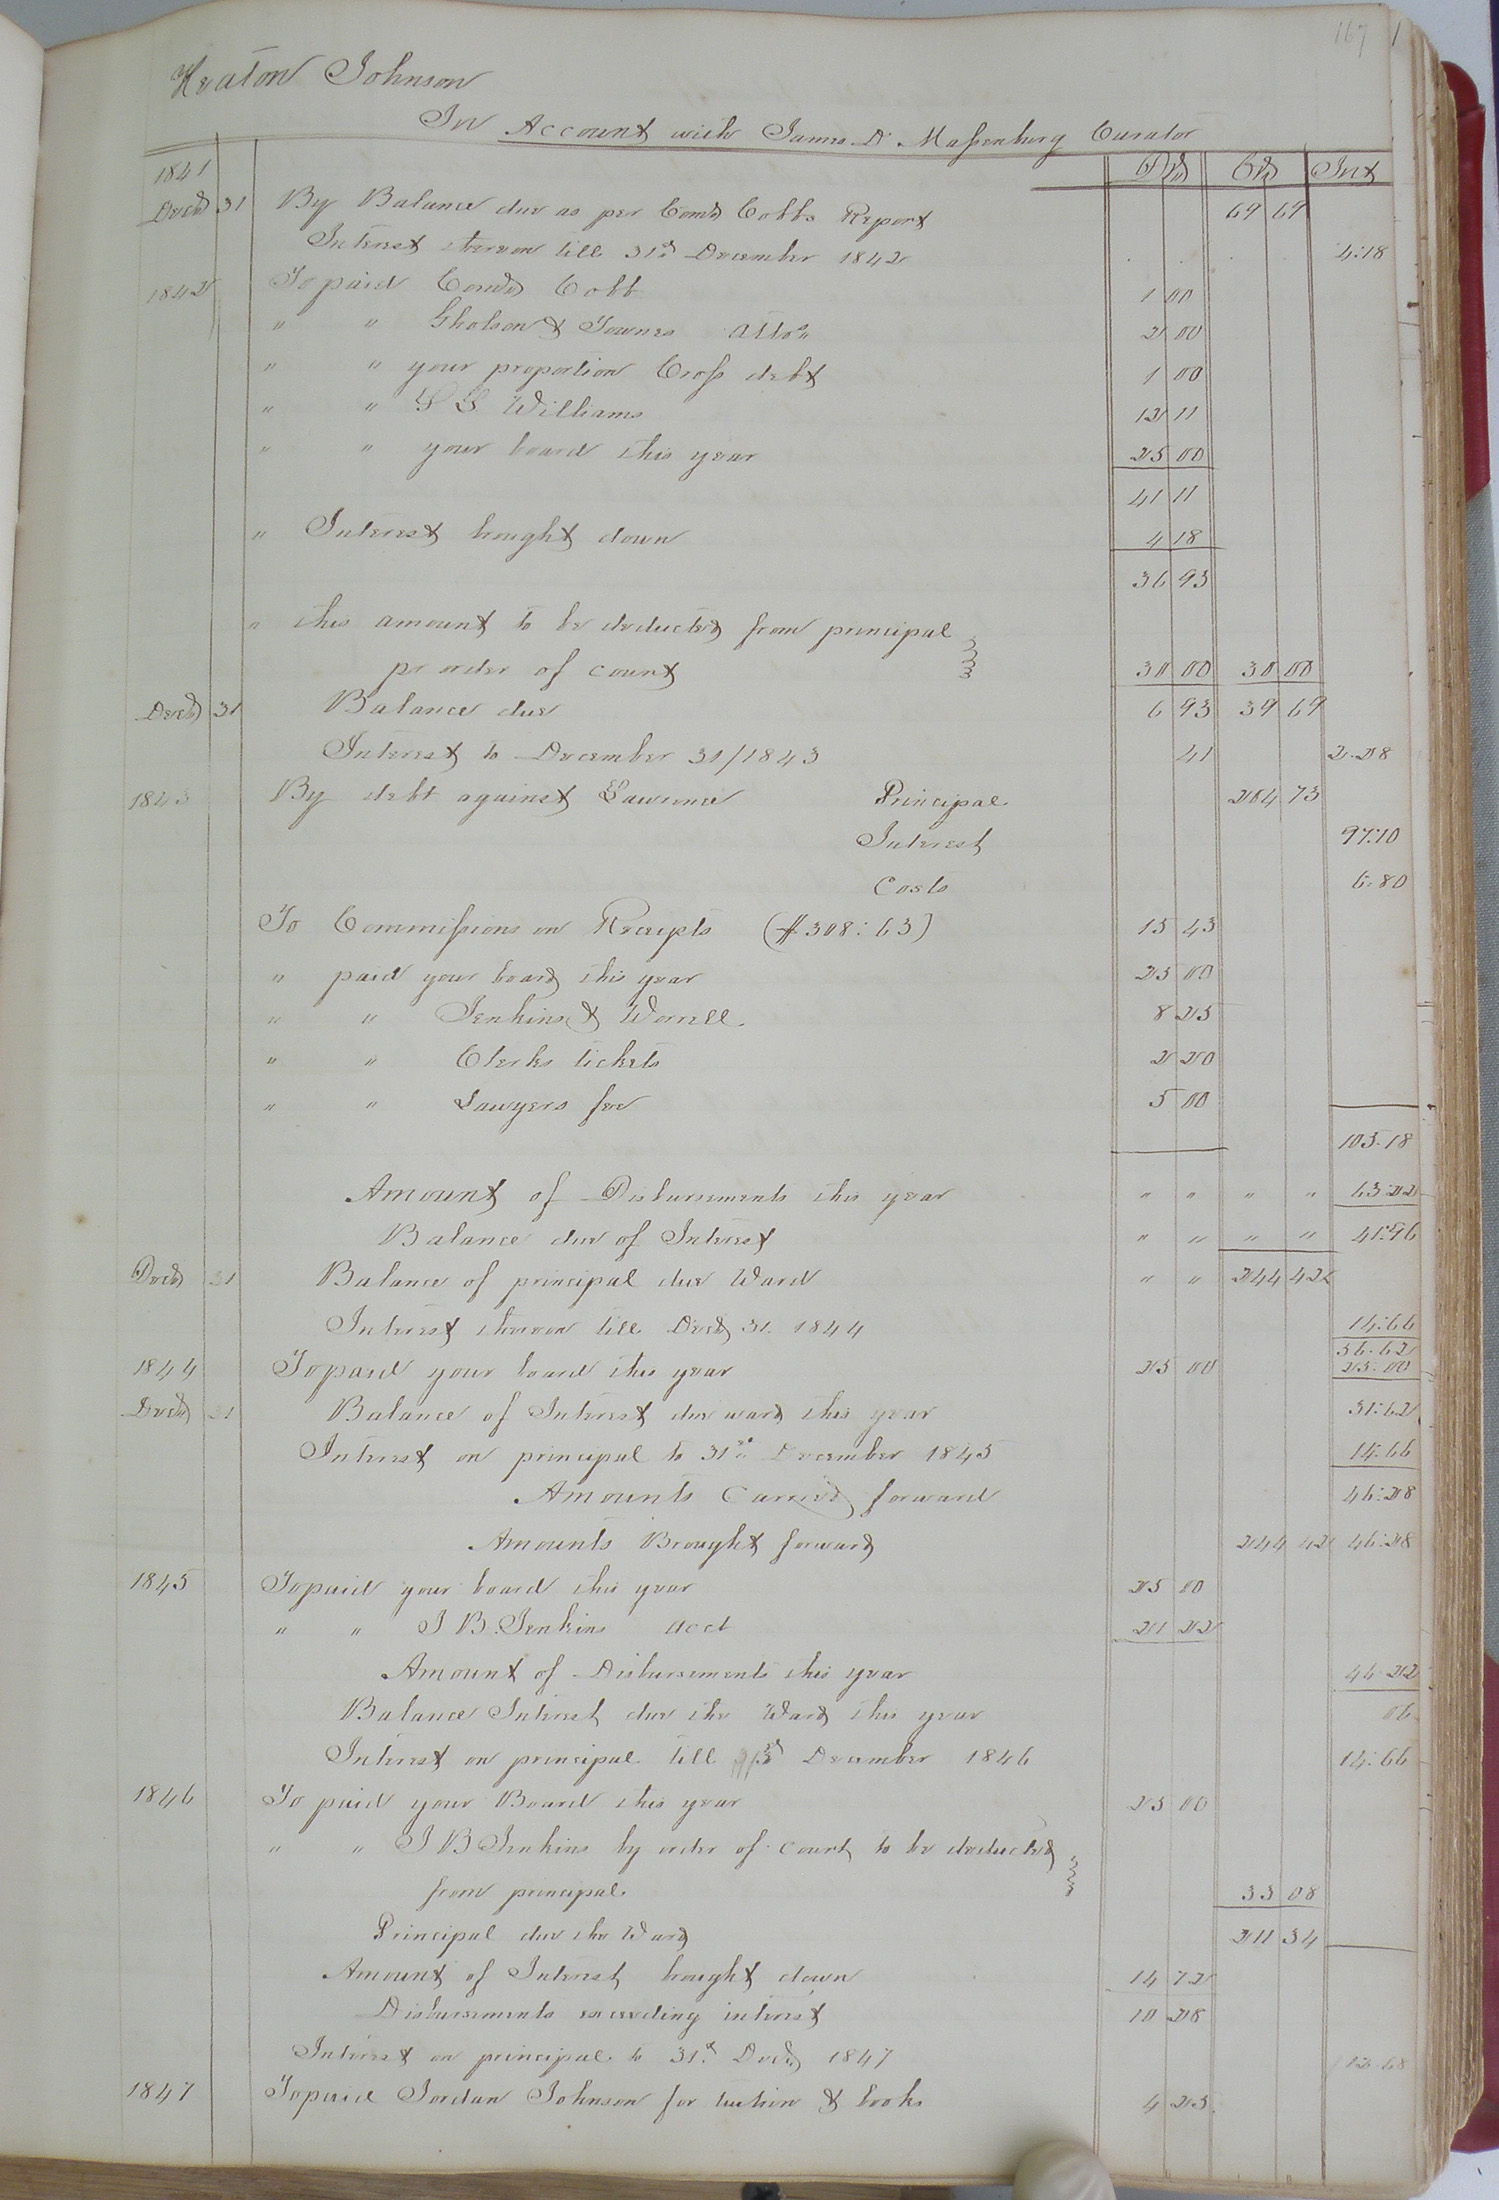 167
Heaton Johnson
In Account with James D. Massenburg Curator
1841 Drs Crs Int
Decr 31 By Balance due as per Comr Cobbs Report 69 69
Interest thereon till 31st December 1842 4:18
1842 To paid Comr Cobb 1 00
" " Gholson & Townes Attos 2 00
" " your proportion Cross debt 1 00
" " G Williams 12 11
" " your board this year 25 00
41 11
" Interest brought down 4 18
36 93
" this amount to be deducted from principal
pr order of court 30 00 30 00
Decr 31 Balance due 6 93 39 69
Interest to December 31/1843 41 2.28
1843 By debt against Lawrence Principal 204 73
Interest 97:10
Costs 6:80
To Commissions on Receipts ($308:63) 15 43
" paid your board this year 25 00
" " Jenkins & Worrell. 8 25
" " Clerks tickets 2 20
" " Lawyers fee 5 00
105.18
Amount of Disbursements this year " " " " 63:22
Balance due of Interest " " " " 41:96
Decr 31 Balance of principal due Ward " " 244 42
Interest thereon till Decr 31. 1844 14:66
56.62
1844 To paid your board this year 25 00 25:00
Decr 31 Balance of Interest due ward this year 31:62
Interest on principal to 31st December 1845 14:66
Amounts Carried forward 46:28
Amounts Brought forward 244 42 46:28
1845 To paid your board this year 25 00
" " J B. Jenkins acct 21 22
Amount of Disbursements this year 46 22
Balance Interest due the Ward this year 06
Interest on principal till December 1846 14:66
1846 To paid your Board this year 25 00
" " J B Jenkins by order of court to be deducted
from principal 33 08
Principal due the Ward 211 34
Amount of Interest brought down 14 72
Disbursements exceeding interest 10 28
Interest on principal to 31st Decr 1847 12.68
1847 To paid Jordan Johnson for tuition & books 4 25